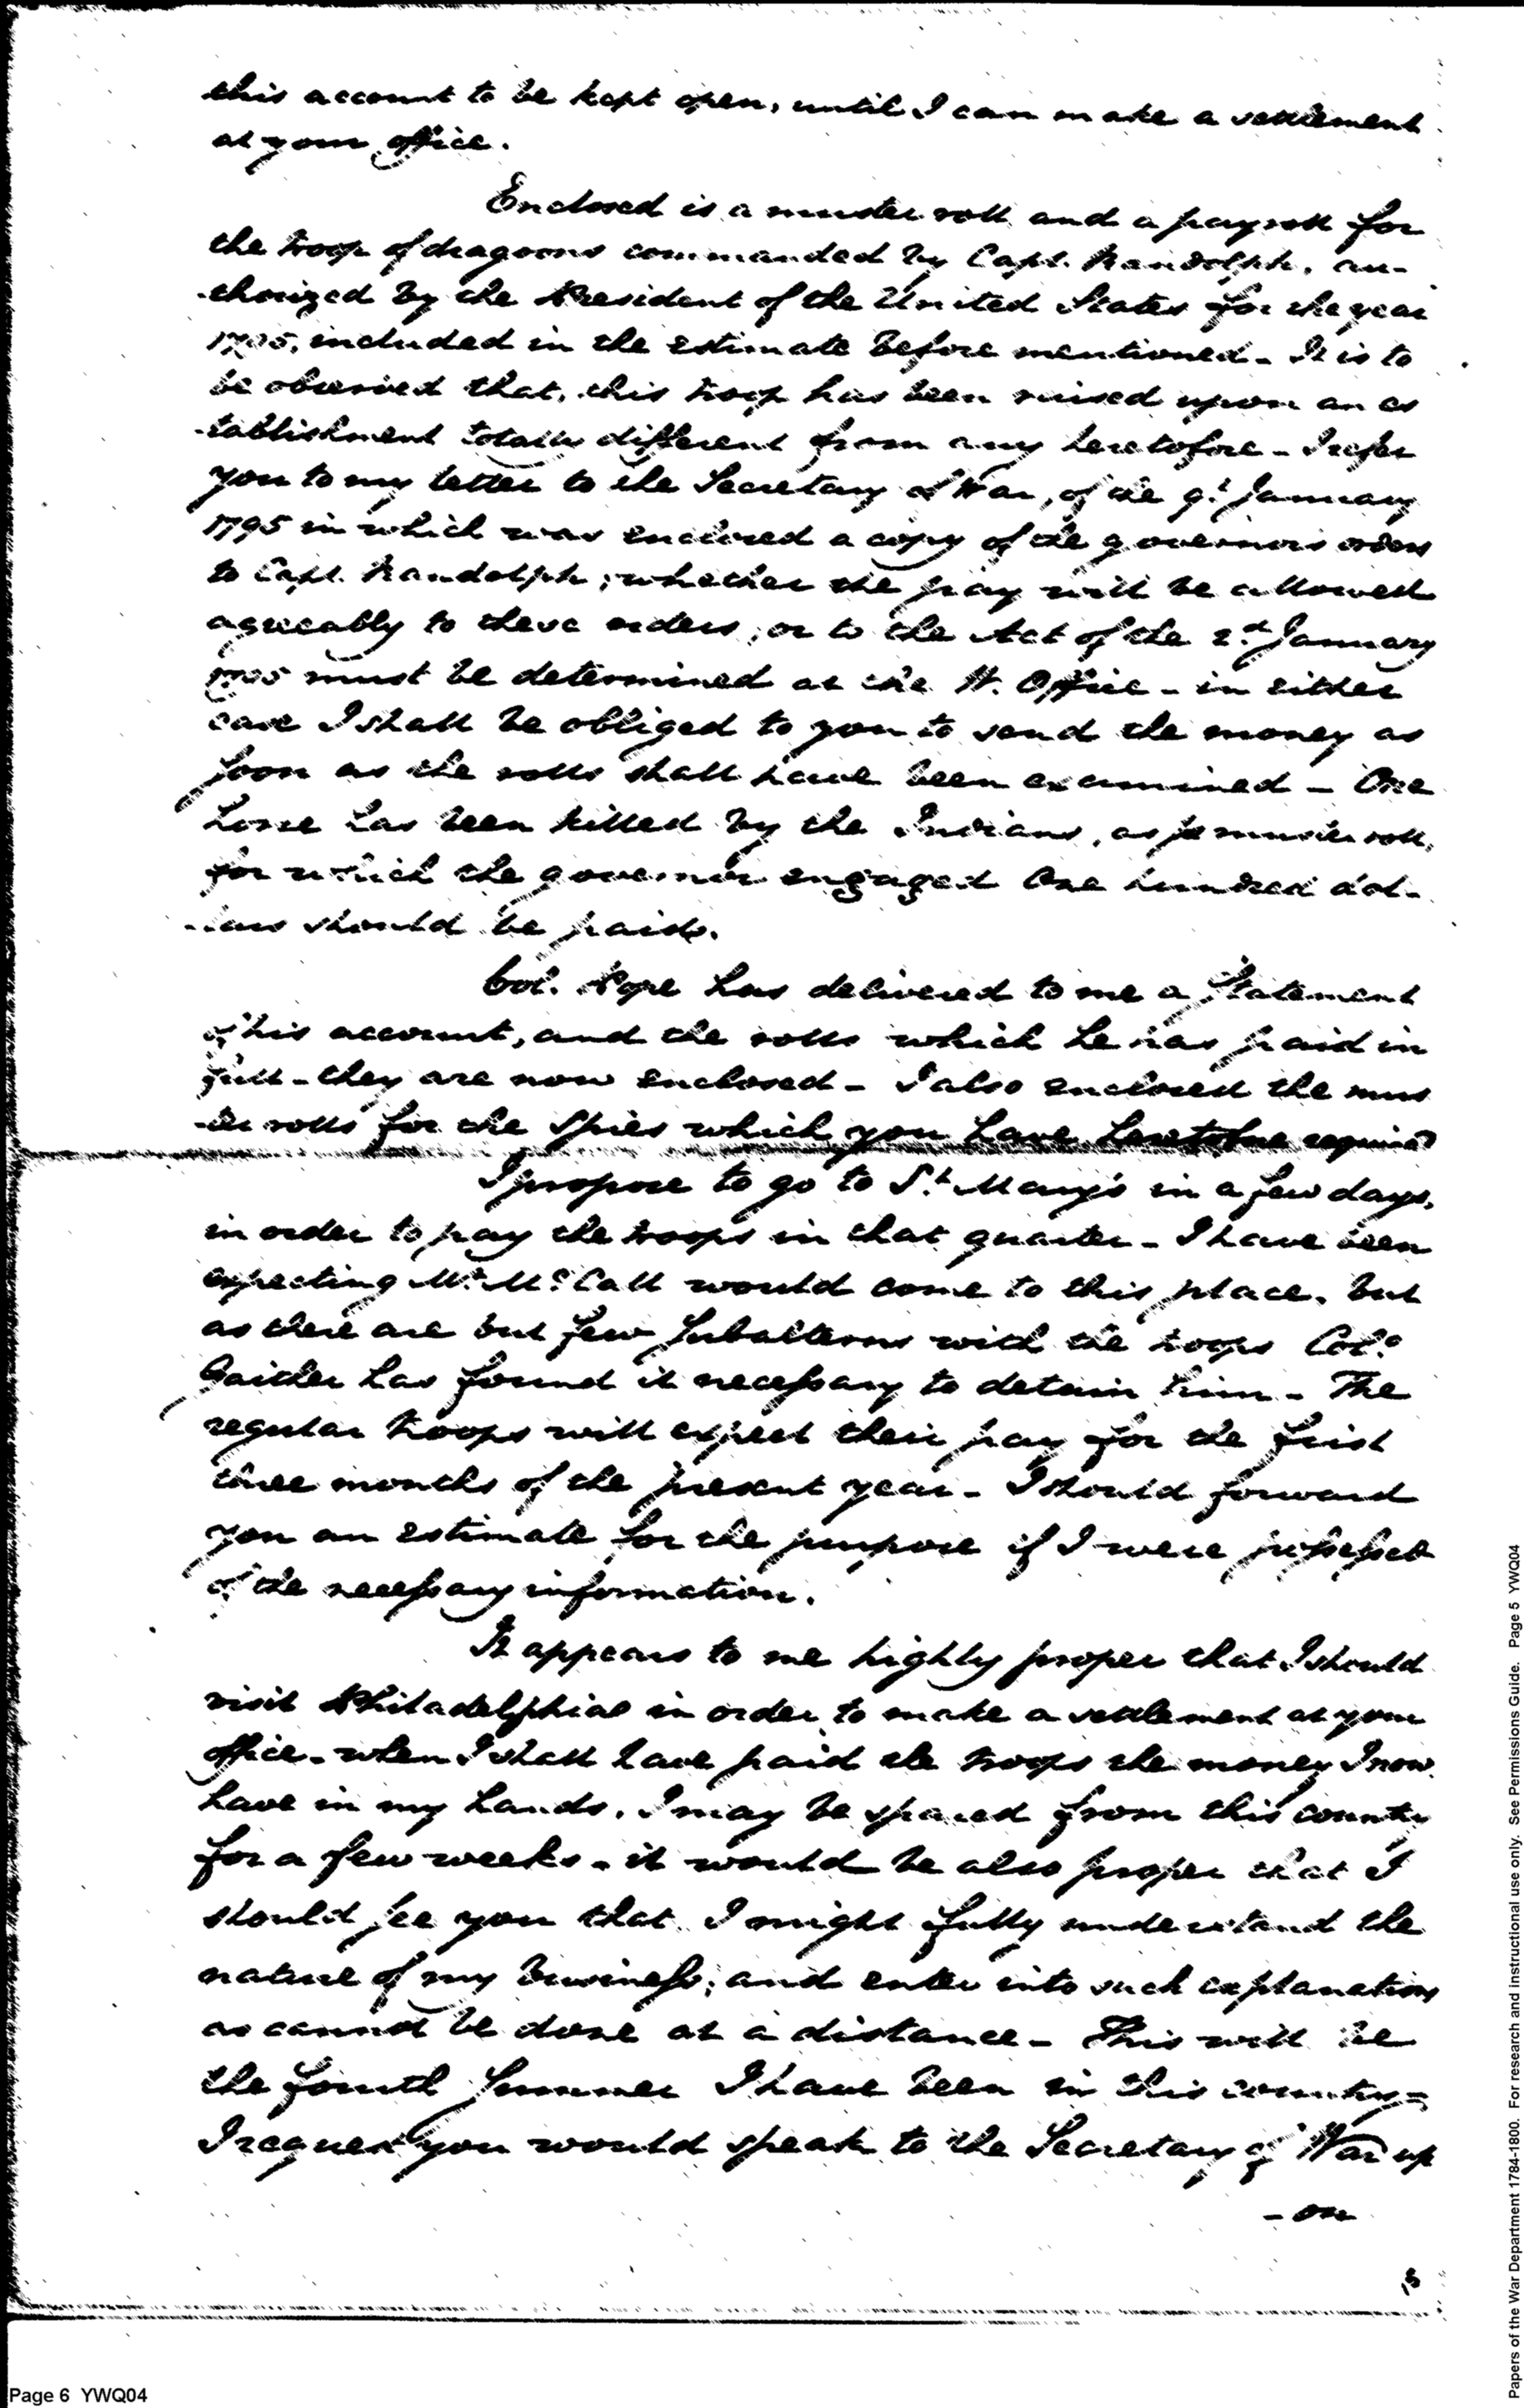 this account to be kept open, until I can make a settlement
at your office.
Enclosed is a muster roll and a pay roll for
the troop of dragoons commanded by Capt. Randolph, au-
-thorized by the President of the United States for the year
1795, included in the estimate before mentioned - It is to
be observed that, this troop has been raised upon an es
-tablishment totally different from any heretofore - I refer
you to my letter to the Secretary of War, of the 9th January
1795 in which was enclosed a copy of the governors orders
to Capt. Randolph; whether the pay will be allowed
agreeably to these orders, or to the Act of the 2d January
1795 must be determined at the W. Office - in either
case I shall be obliged to you to send the money as
soon as the rolls shall have been examined - One
horse has been killed by the Indians, as pr muster roll,
for which the governor engaged One hundred dol-
-lars should be paid.
Col. Pope has delivered to me a Statement
of his account, and the rolls which he has paid in
full - they are now enclosed - I also enclosed the mus
-ter rolls for the Spies which you have heretofore required
I propose to go to St. Mary's in a few days,
in order to pay the troops in that quarter - I have been
expecting Mr. McCall would come to this place, but
as there are but few subalterns with the troops Colo
Gaither has found it necessary to detain him - The
regular troops will expect their pay for the first
three months of the present year - I should forward
you an estimate for the purpose if I were possessed
of the necessary information.
It appears to me highly proper that I should
visit Philadelphia in order to make a settlement at your
office - when I shall have paid the troops the money I now
have in my hands, I may be spared from this country
for a few weeks - it would be also proper that I
should see you that I might fully understand the
nature of my business; and enter into such explanations
as cannot be done at a distance - This will be
the fourth Summer I have been in this country -
I request you would speak to the Secretary of War up
- on
15
Page 6 YWQ04
Papers of the War Department 1784-1800. For research and instructional use only. See Permissions Guide. Page 5 YWQ04